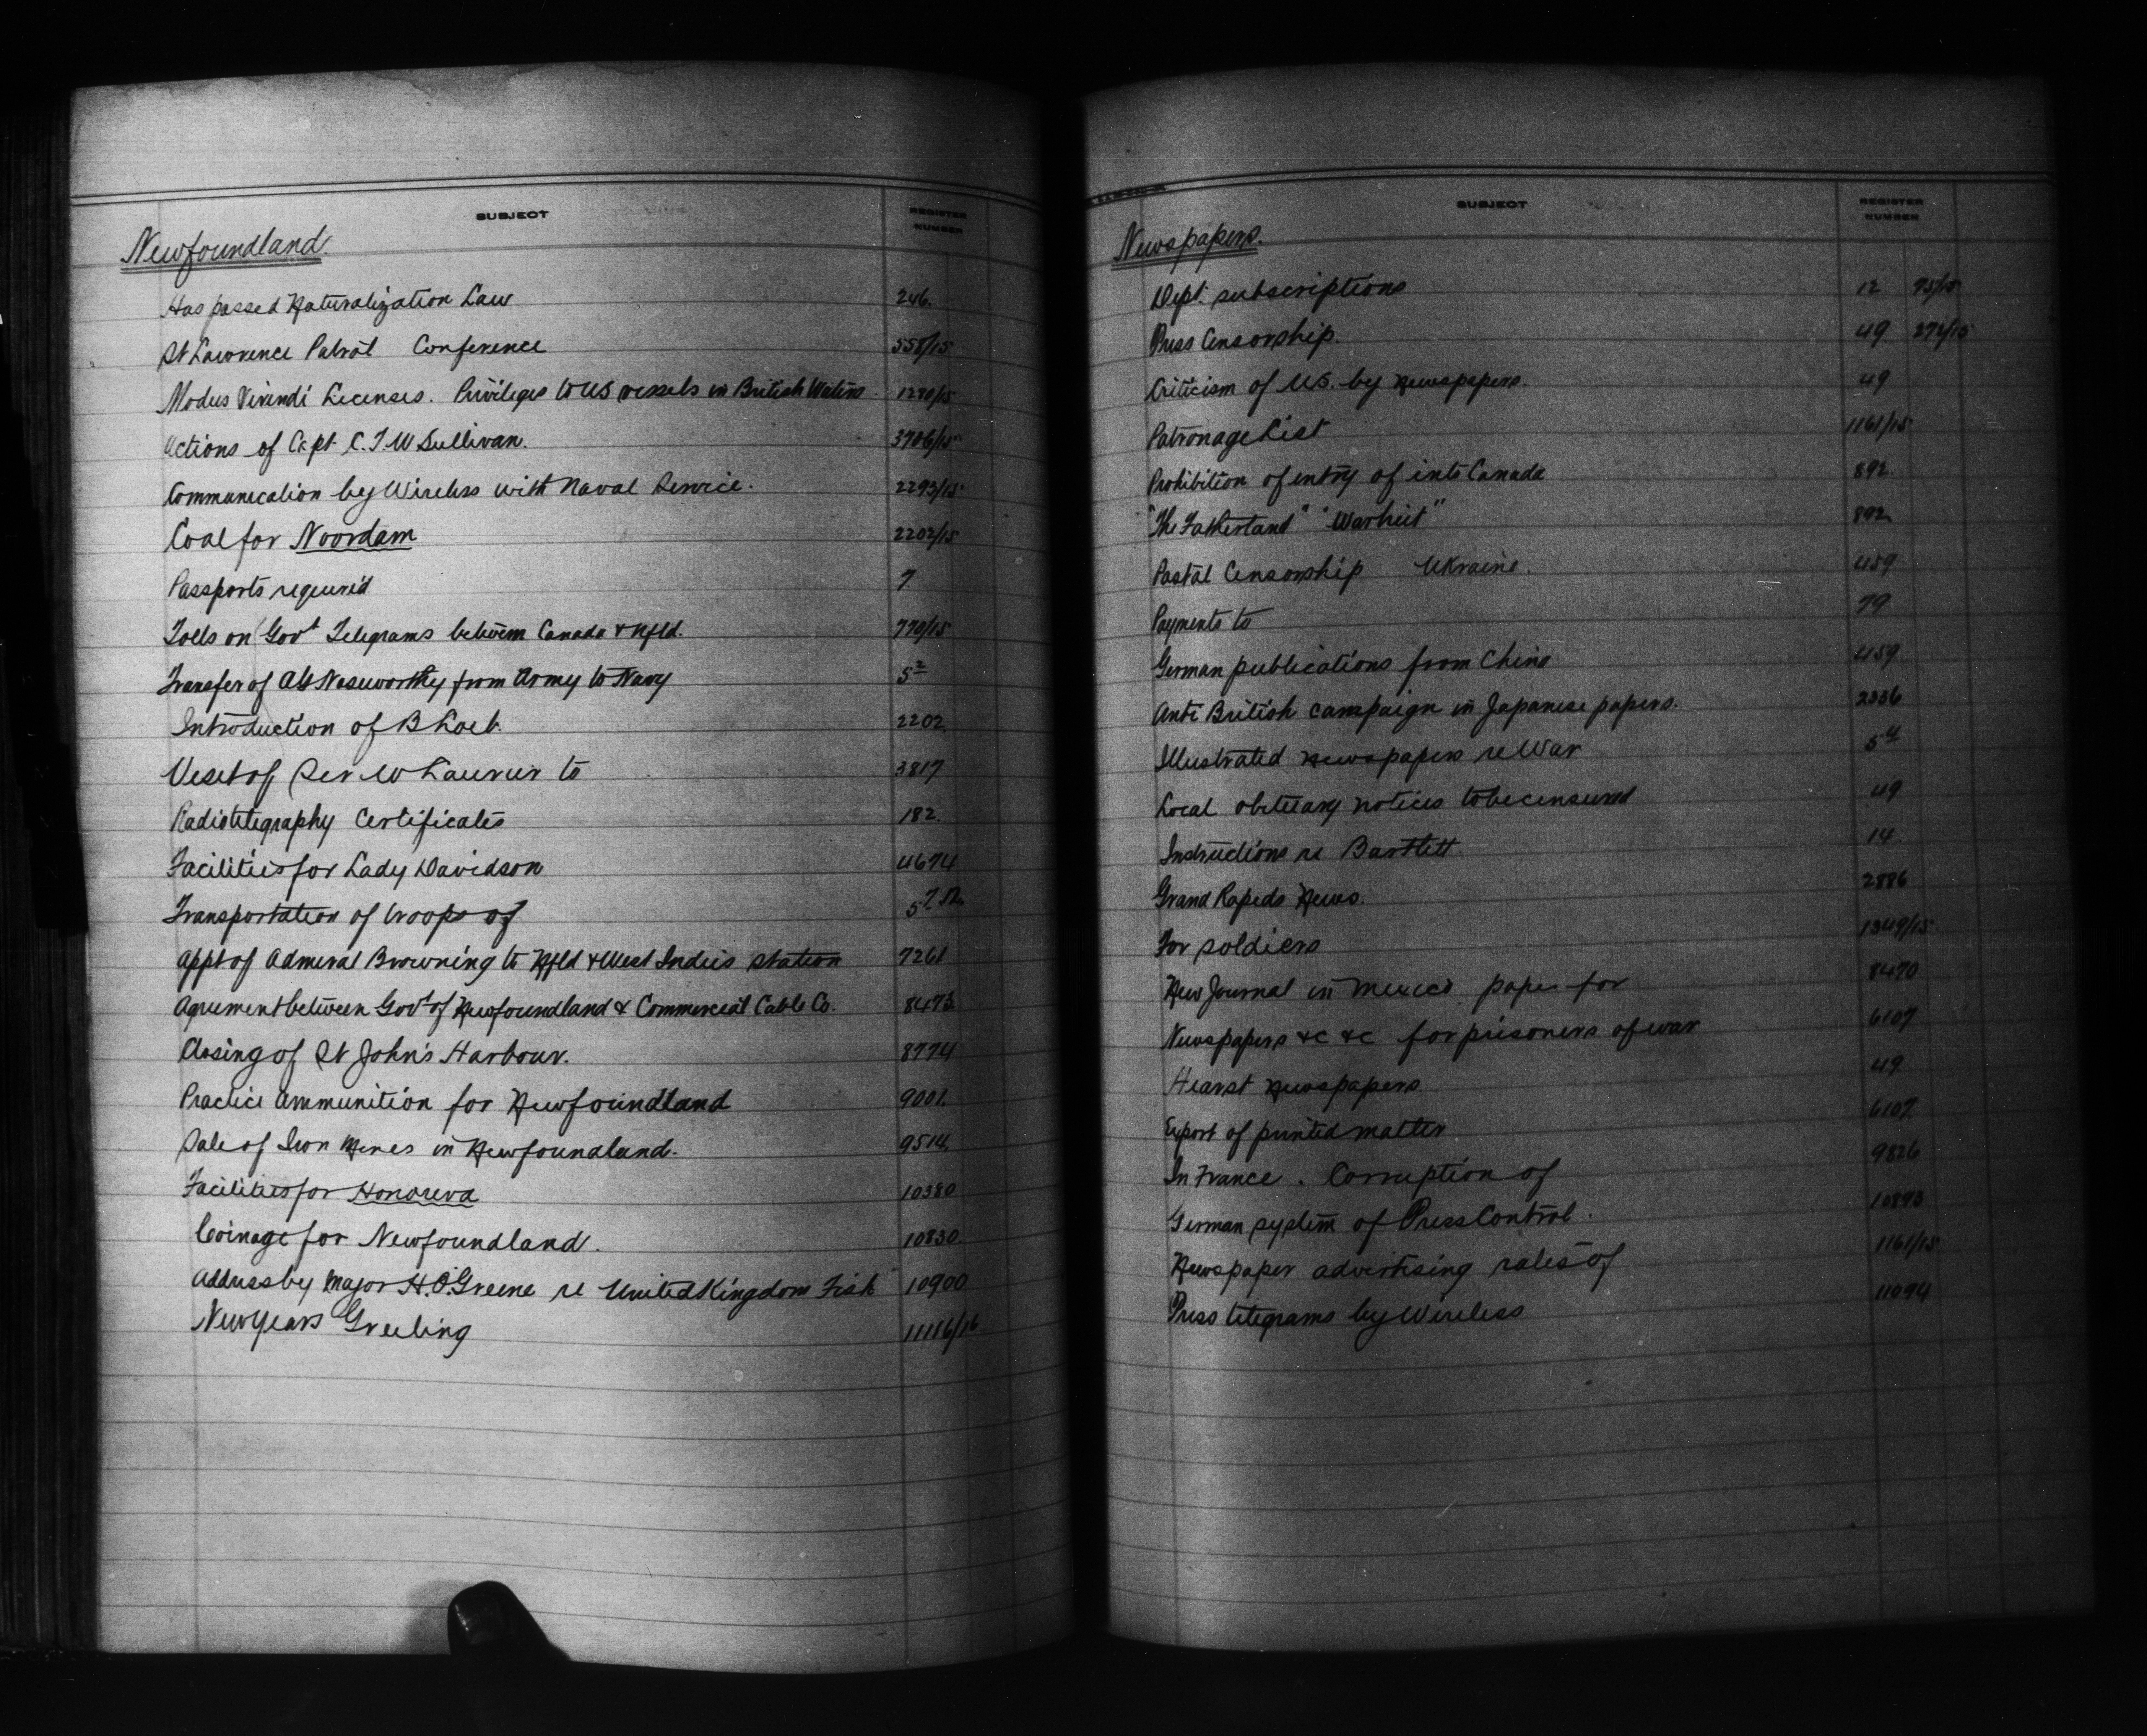 SUBJECT REGISTER NUMBER
Newfoundland.
Has passed Naturalization Law 246.
St Lawrence Patrol Conference 558/15
Modus Vivendi Licenses. Privileges to US vessels in British Waters. 1290/15
Actions of Capt C.T.W Sullivan. 3706/15
Communication by Wireless with Naval Service. 2293/15
Coal for Noordam 2202/15
Passports required 7
Tolls on Govt Telegrams between Canada & Nfld. 770/15
Transfer of Noseworthy from Army to Navy 5²
Introduction of B Loeb. 2202
Visit of Sir W Laurier to 3817
Radiotelegraphy Certificates 182.
Facilities for Lady Davidson 4674
Transportation of troops of
Appt of Admiral Browning to Nfld & West Indies Station 7261
Agreement between Govt of Newfoundland & Commercial Cable Co. 8473
Closing of St John's Harbour. 8774
Practice Ammunition for Newfoundland 9001.
Sale of Iron Mines in Newfoundland. 9514.
Facilities for Honoreva 10380
Coinage for Newfoundland. 10830
Address by Major H.O'Greene re United Kingdom Fish 10900
New Years Greeting 11116/16
SUBJECT REGISTER NUMBER
Newspapers.
Dept. subscriptions 12 75/15
Press Censorship. 49 272/15
Criticism of U.S. by Newspapers. 49
Patronage List 1161/15
Prohibition of entry of into Canada 892
"The Fatherland" "Warheit" 892
Postal Censorship Ukraine. 459
Payments to 79
German publications from China 459
Anti British campaign in Japanese papers. 2336
Illustrated Newspapers re War 5⁴
Local obituary notices to be censured 49
Instructions re Bartlett 14
Grand Rapids News. 2886
For soldiers 1349/15
New Journal in Mexico paper for 8470
Newspapers &c &c for prisoners of war 6107
Hearst Newspapers 49
Export of printed matter 6107
In France. Corruption of 9826
German system of Press Control. 10893
Newspaper advertising rates of 1161/15
Press telegrams by Wireless 11094